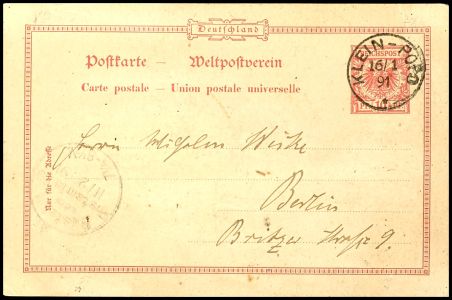 Deutschland
Postkarte – Weltpostverein
Carte postale – Union postale universelle
REICHSPOST
10
KLEIN-POPO
16/1
91
Herrn Wilhelm
Berlin
Britzer Straße 9.
Nur für die Adresse